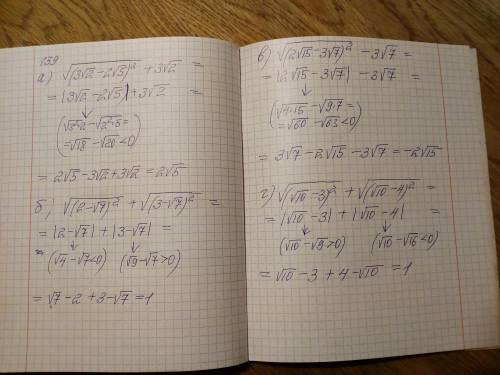 139
а) √(3√2-2√5)² + 3√2 =
= |3√2-2√5| + 3√2 =
(√3²·2 - √2²·5 =
= √18 - √20 < 0)
= 2√5 - 3√2 + 3√2 = 2√5
б) √(2-√7)² + √(3-√7)² =
= |2-√7| + |3-√7| =
(√4 - √7 < 0) (√9 - √7 > 0)
= √7 - 2 + 3 - √7 = 1
в) √(2√15 - 3√7)² - 3√7 =
= |2√15 - 3√7| - 3√7 =
(√4·15 - √9·7 =
= √60 - √63 < 0)
= 3√7 - 2√15 - 3√7 = -2√15
г) √(√10 - 3)² + √(√10 - 4)² =
= |√10 - 3| + |√10 - 4| =
(√10 - √9 > 0) (√10 - √16 < 0)
= √10 - 3 + 4 - √10 = 1